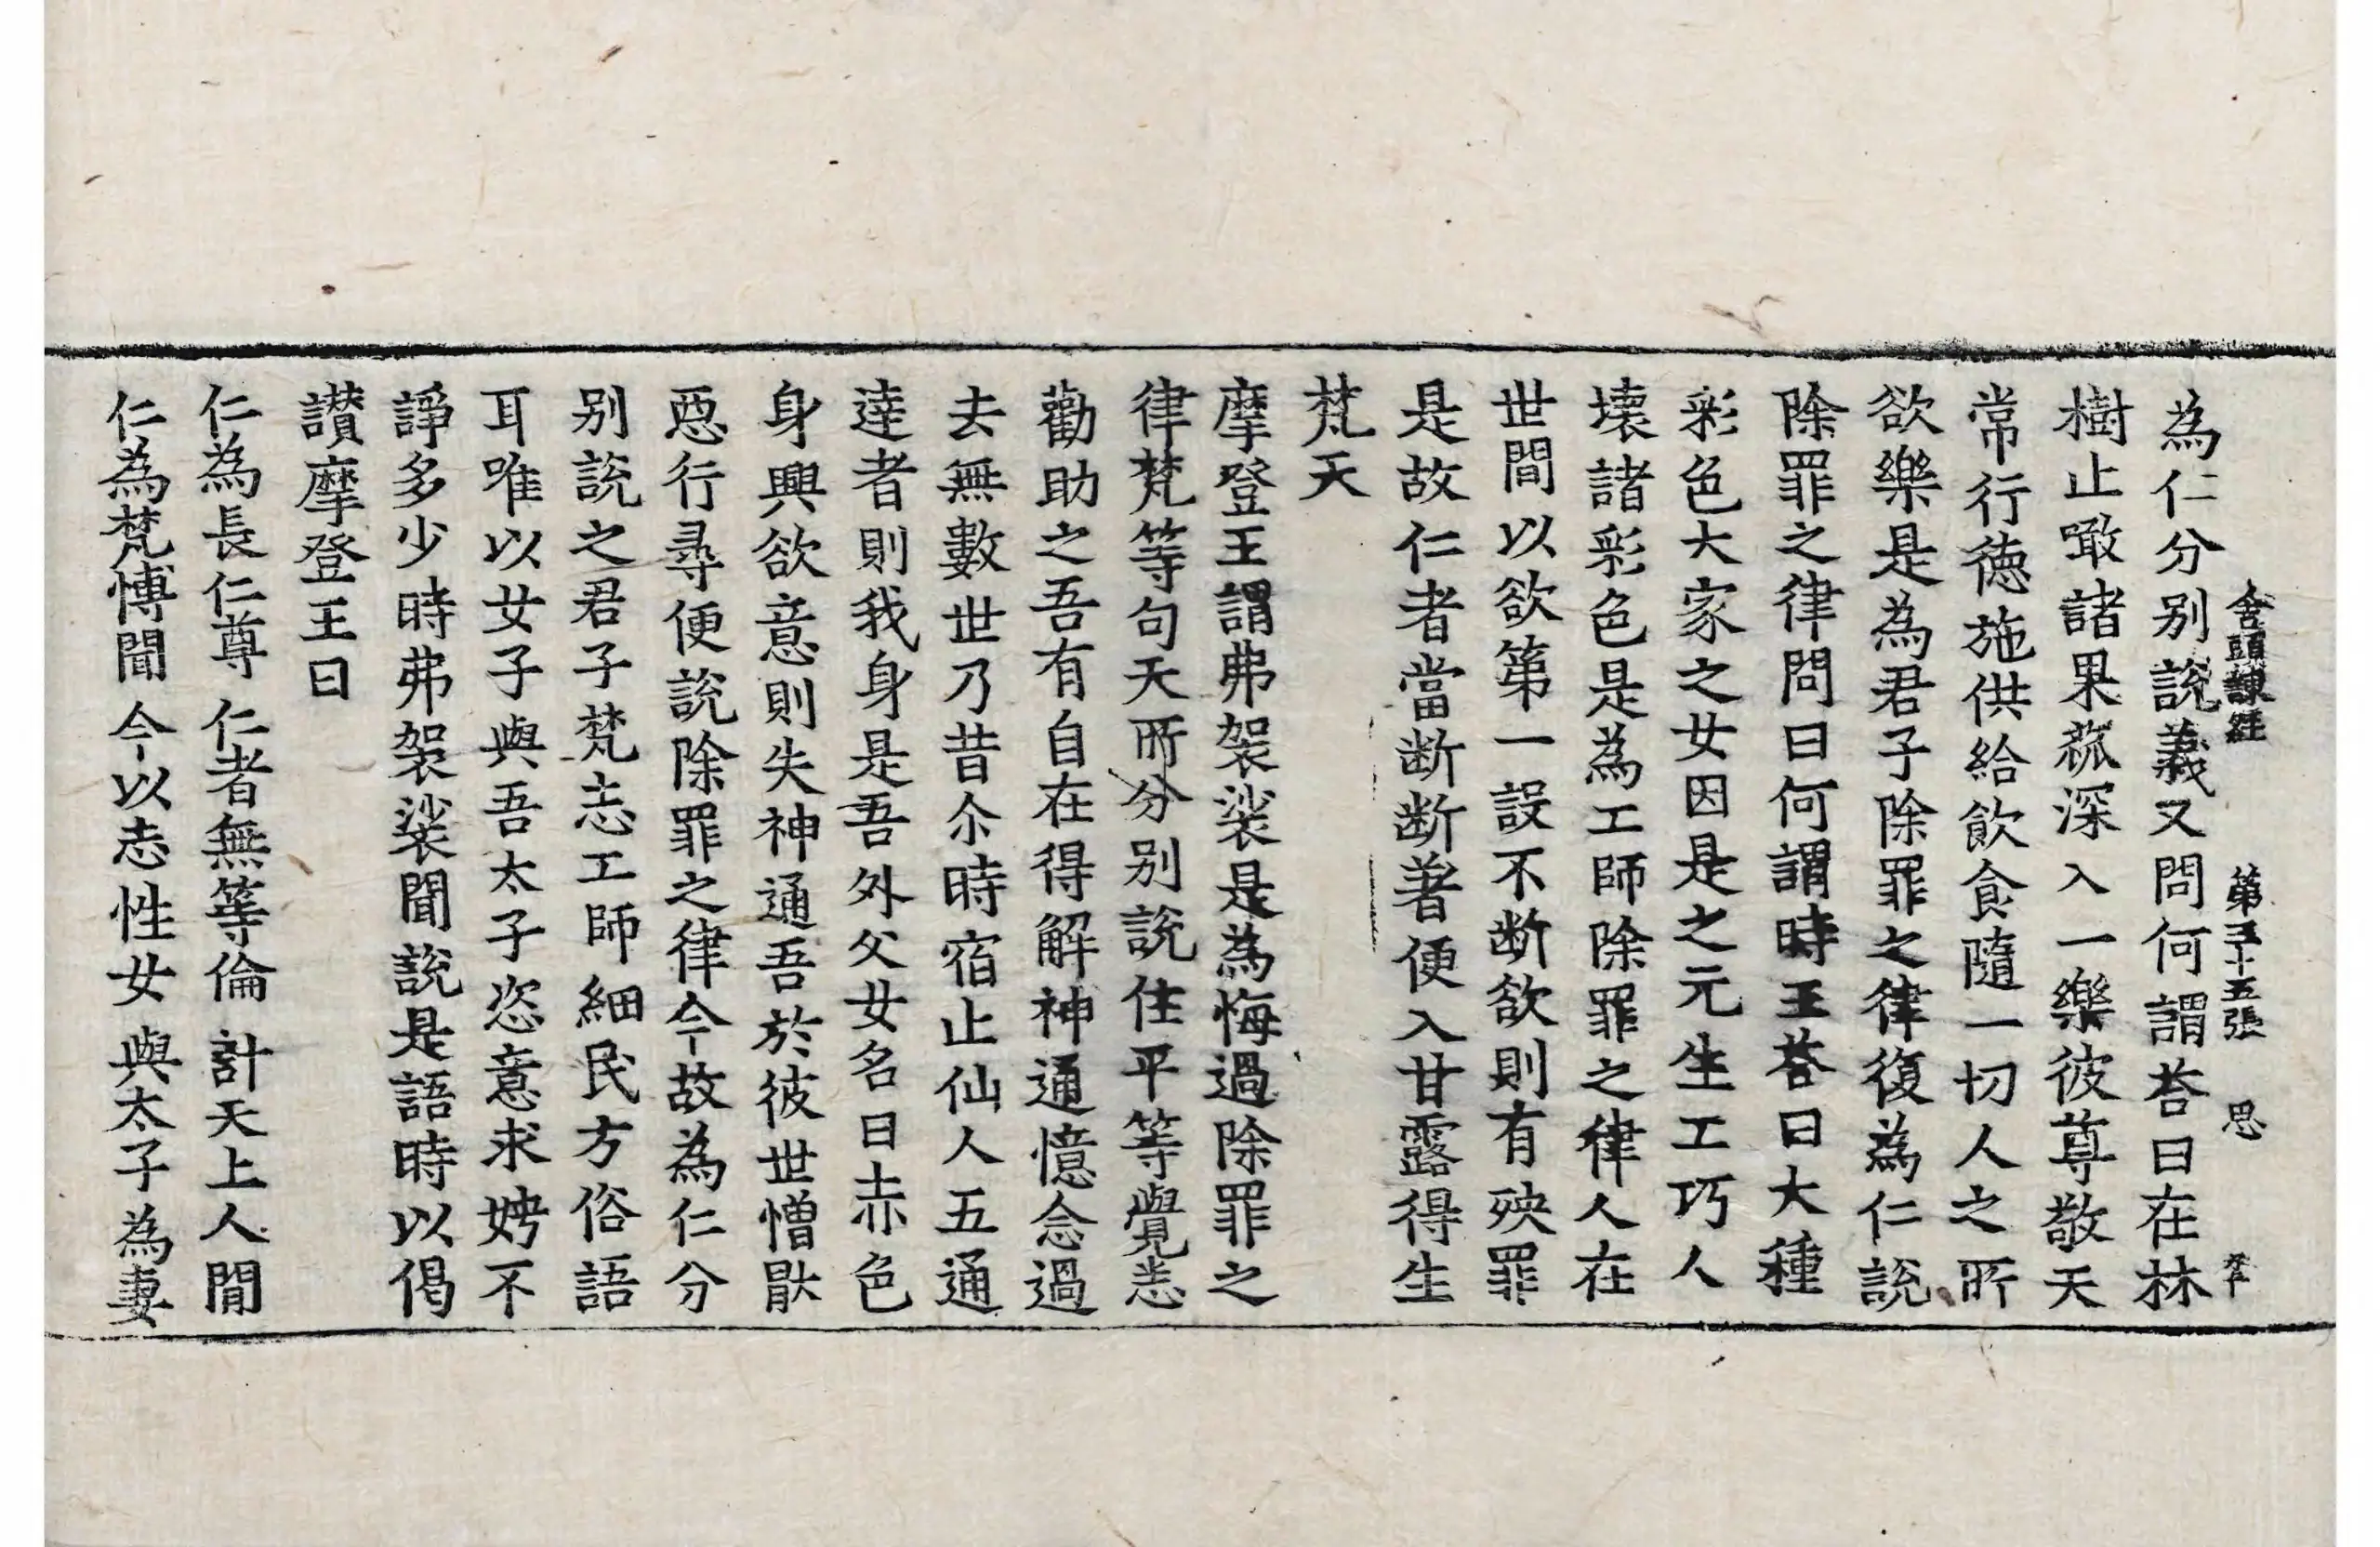 為仁分別說義又問何謂荅曰在林
舍頭諫經 第三十五張 思
樹止噉諸果蓏深入一樂彼尊敬天
常行德施供給飲食隨一切人之所
欲樂是為君子除罪之律復為仁說
除罪之律問曰何謂時王荅曰大種
彩色大家之女因是之元生工巧人
壞諸彩色是為工師除罪之律人在
世間以欲第一設不断欲則有殃罪
是故仁者當断断著便入甘露得生
梵天
摩登王謂弗袈裟是為悔過除罪之
律梵等句天所分別說住平等覺志
勸助之吾有自在得解神通憶念過
去無數世乃昔尒時宿止仙人五通
達者則我身是吾外父女名曰赤色
身興欲意則失神通吾於彼世憎猒
惡行尋便說除罪之律今故為仁分
別說之君子梵志工師細民方俗語
耳唯以女子與吾太子恣意求娉不
諍多少時弗袈裟聞說是語時以偈
讃摩登王曰
仁為長仁尊 仁者無等倫 計天上人間
仁為梵愽聞 今以志性女 與太子為妻